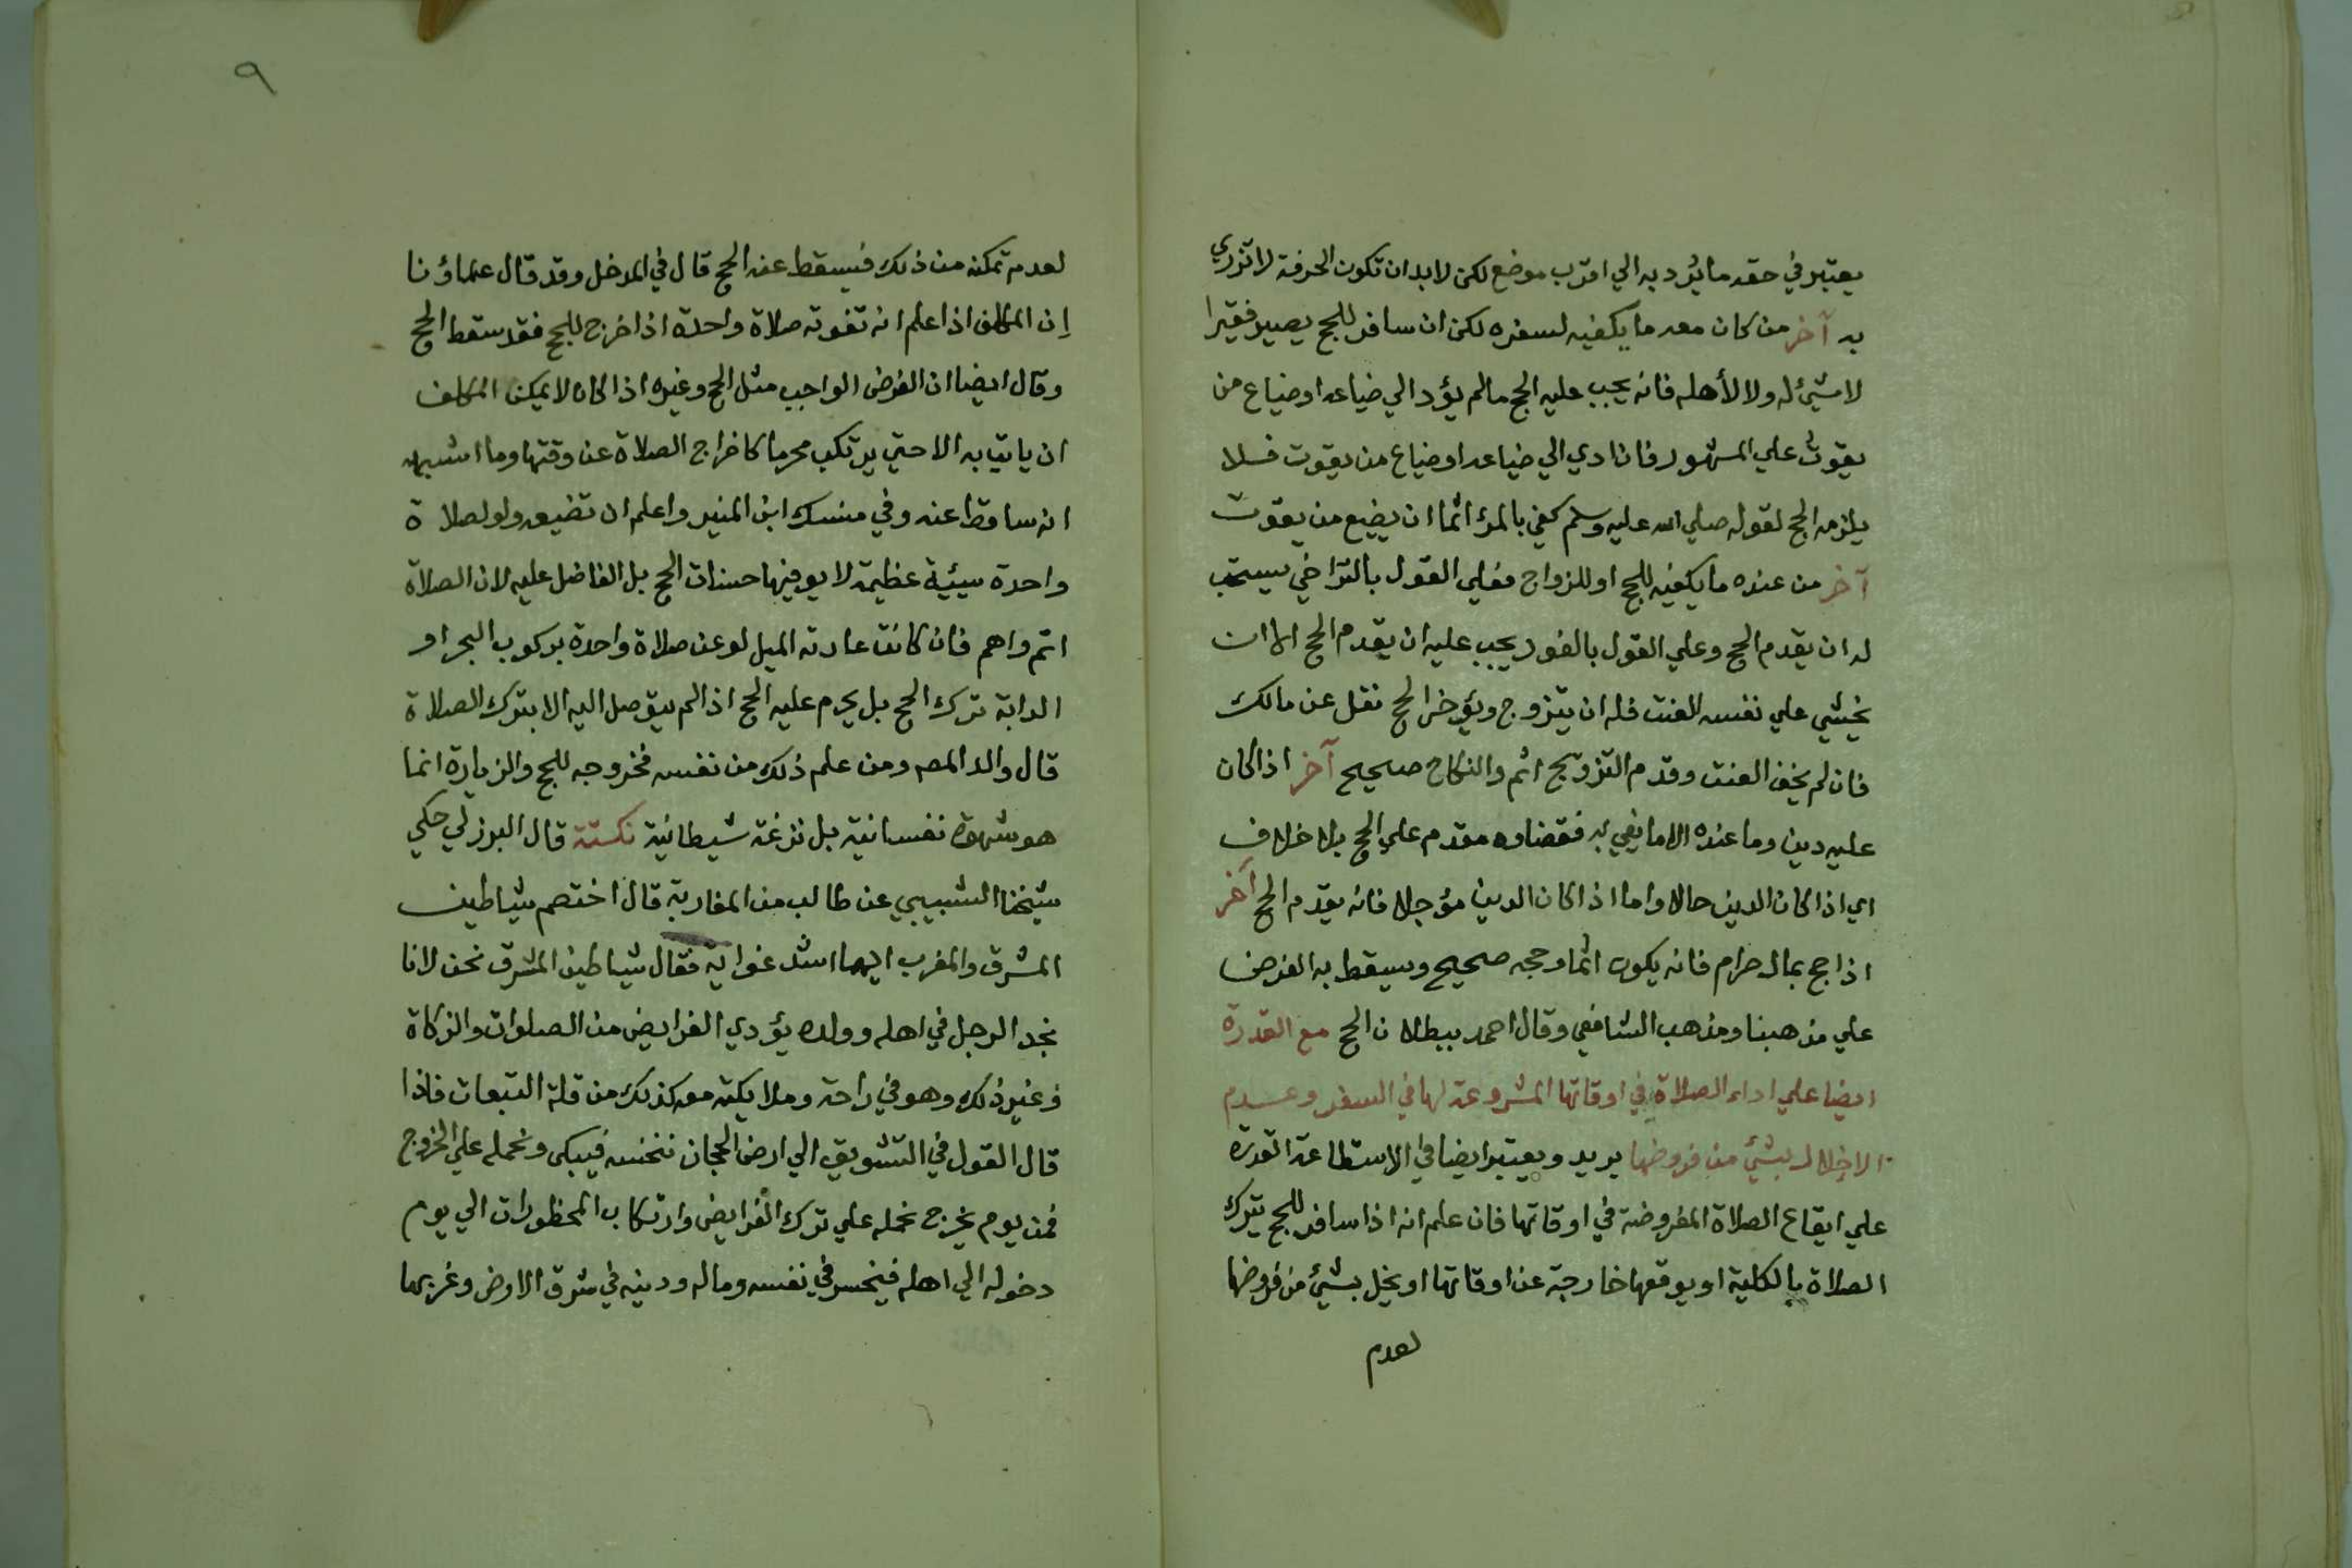 يعتبر في حقه ما يرد به الي اقرب موضع لكن لابد ان تكون الحرفة لا تزري
به آخر من كان معه ما يكفيه لسفره لكن ان سافر للحج يصير فقيرا
لا شيئ له ولا لأهله فانه يجب عليه الحج مالم يؤد الي ضياعه او ضياع من
يقوت علي المشهور فان ادي الي ضياعه او ضياع من يقوت فلا
يلزمه الحج لقوله صلي الله عليه وسلم كفي بالمرء اثما ان يضيع من يقوت
آخر من عنده ما يكفيه للحج او للزواج فعلي القول بالتراخي يستحب
له ان يقدم الحج وعلي القول بالفور يجب عليه ان يقدم الحج الا ان
يخشي علي نفسه العنت فله ان يتزوج ويؤخر الحج نقل عن مالك
فان لم يخف العنت وقدم التزويج اثم والنكاح صحيح آخر اذا كان
عليه دين وما عنده الا ما يفي به فقضاوه مقدم علي الحج بلا خلاف
اي اذا كان الدين حالا واما اذا كان الدين مؤجلا فانه يقدم الحج آخر
اذا حج بمال حرام فانه يكون اثما وحجه صحيح ويسقط به الفرض
علي مذهبنا ومذهب الشافعي وقال احمد ببطلان الحج مع القدرة
ايضا علي اداء الصلاة في اوقاتها المشروعة لها في السفر وعدم
الاخلال بشيئ من فروضها يريد ويعتبر ايضا في الاستطاعة القدرة
علي ايقاع الصلاة المفروضة في اوقاتها فان علم انه اذا سافر للحج يترك
الصلاة بالكلية او يوقعها خارجة عن اوقاتها او يخل بشيئ من فروضها
لعدم
٩
لعدم تمكنه من ذلك فيسقط عنه الحج قال في المدخل وقد قال علماؤنا
إن المكلف اذا علم انه تفوته صلاة واحدة اذا خرج للحج فقد سقط الحج
وقال ايضا ان الفرض الواجب مثل الحج وغيره اذا كان لا يمكن المكلف
ان ياتي به الا حتي يرتكب محرما كاخراج الصلاة عن وقتها وما اشبهه
انه ساقط عنه وفي منسك ابن المنير واعلم ان تضييعه ولو لصلاة
واحدة سيئية عظيمة لا يوفيها حسنات الحج بل الفاضل عليه لان الصلاة
اتم واهم فان كانت عادته الميل لو عن صلاة واحدة بركوب البحر او
الدابة ترك الحج بل يحرم عليه الحج اذا لم يتوصل اليه الا بترك الصلاة
قال والد المص ومن علم ذلك من نفسه فخروجه للحج والزيارة انما
هو شهوة نفسانية بل نزغة شيطانية نكتة قال البرزلي حكي
شيخنا الشبيبي عن طالب من المغاربة قال اختصم شياطين
المشرق والمغرب ايهما اشد غواية فقال شياطين المشرق نحن لانا
نجد الرجل في اهله وولده يؤدي الفرايض من الصلوات والزكاة
وغير ذلك وهو في راحة وملايكته معه كذلك من قلة التبعات فاذا
قال القول في التشويق الي ارض الحجاز ننخسه فيبكي ونحمله علي الخروج
فمن يوم يخرج نحمله علي ترك الفرايض وارتكاب المحظورات الي يوم
دخوله الي اهله فيخسر في نفسه وماله ودينه في شرق الارض وغربها